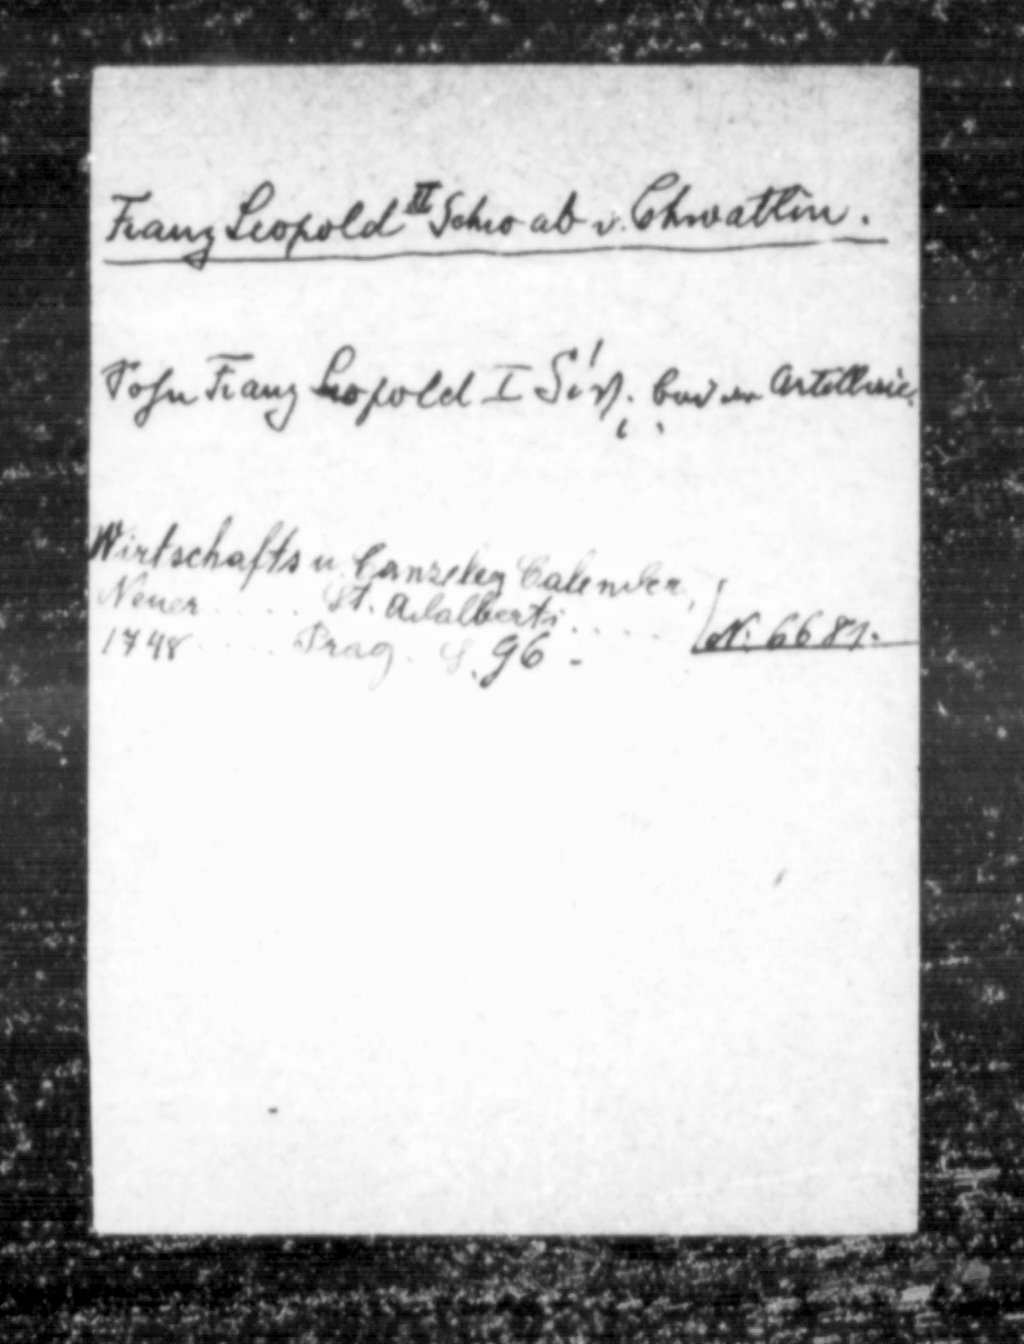 Franz Leopold II Schwab v. Chwatlin.
Sohn Franz Leopold I S. bei der Artillerie.
Wirtschafts u. Canzeley Calender,
Neuer ..... St. Adalberti..... N. 6681.
1748 ..... Prag. S. 96 -